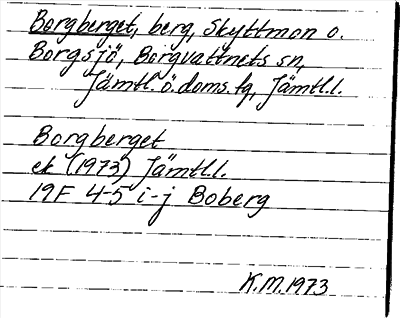 Borgberget, berg, Skyttmon o.
Borgsjö, Borgvattnets sn,
Jämtl. ö. doms. fg, Jämtl.l.
Borgberget
ek (1973) Jämtl.l.
19F 4-5 i-j Boberg
K.M. 1973